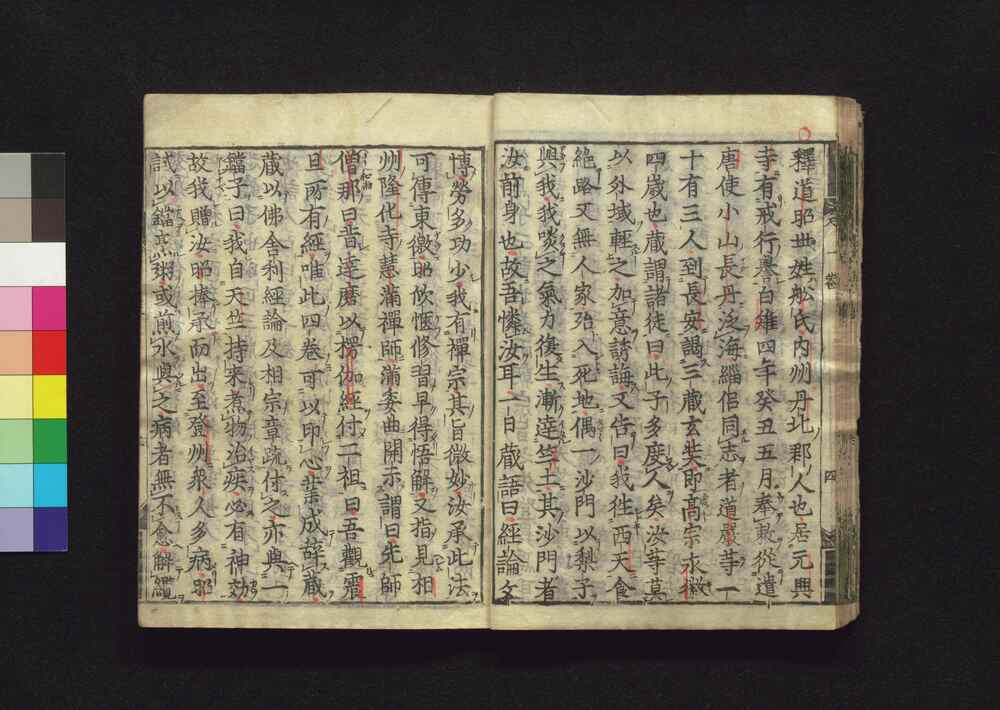 釋道昭世姓舩氏内州丹北郡人也居元興
寺有戒行譽白雉四年癸丑五月奉勅從遣
唐使小山長丹泛海緇侶同志者道嚴等一
十有三人到長安謁三藏玄奘即高宗永徽
四歳也藏謂諸徒曰此子多度人矣汝等莫
以外域輕之加意誘誨又告曰我徃西天食
絶路又無人家殆入死地偶一沙門以梨子
與我我啖之氣力復生漸達竺土其沙門者
汝前身也故吾憐汝耳一日藏語曰經論文
博勞多功少我有禪宗其旨微妙汝承此法
可傳東徼昭欣愜修習早得悟解又指見相
州隆化寺慧滿禪師滿委曲開示謂曰先師
僧那曰昔達磨以楞伽經付二祖曰吾觀震
旦所有經唯此四卷可以印心業成辭藏
藏以佛舎利經論及相宗章疏付之亦與一
鐺子曰我自天竺持来煮物治疾必有神効
故我贈汝昭捧承而出至登州衆人多病昭
試以鐺煮粥或煎水與之病者無不愈解纜
一
四